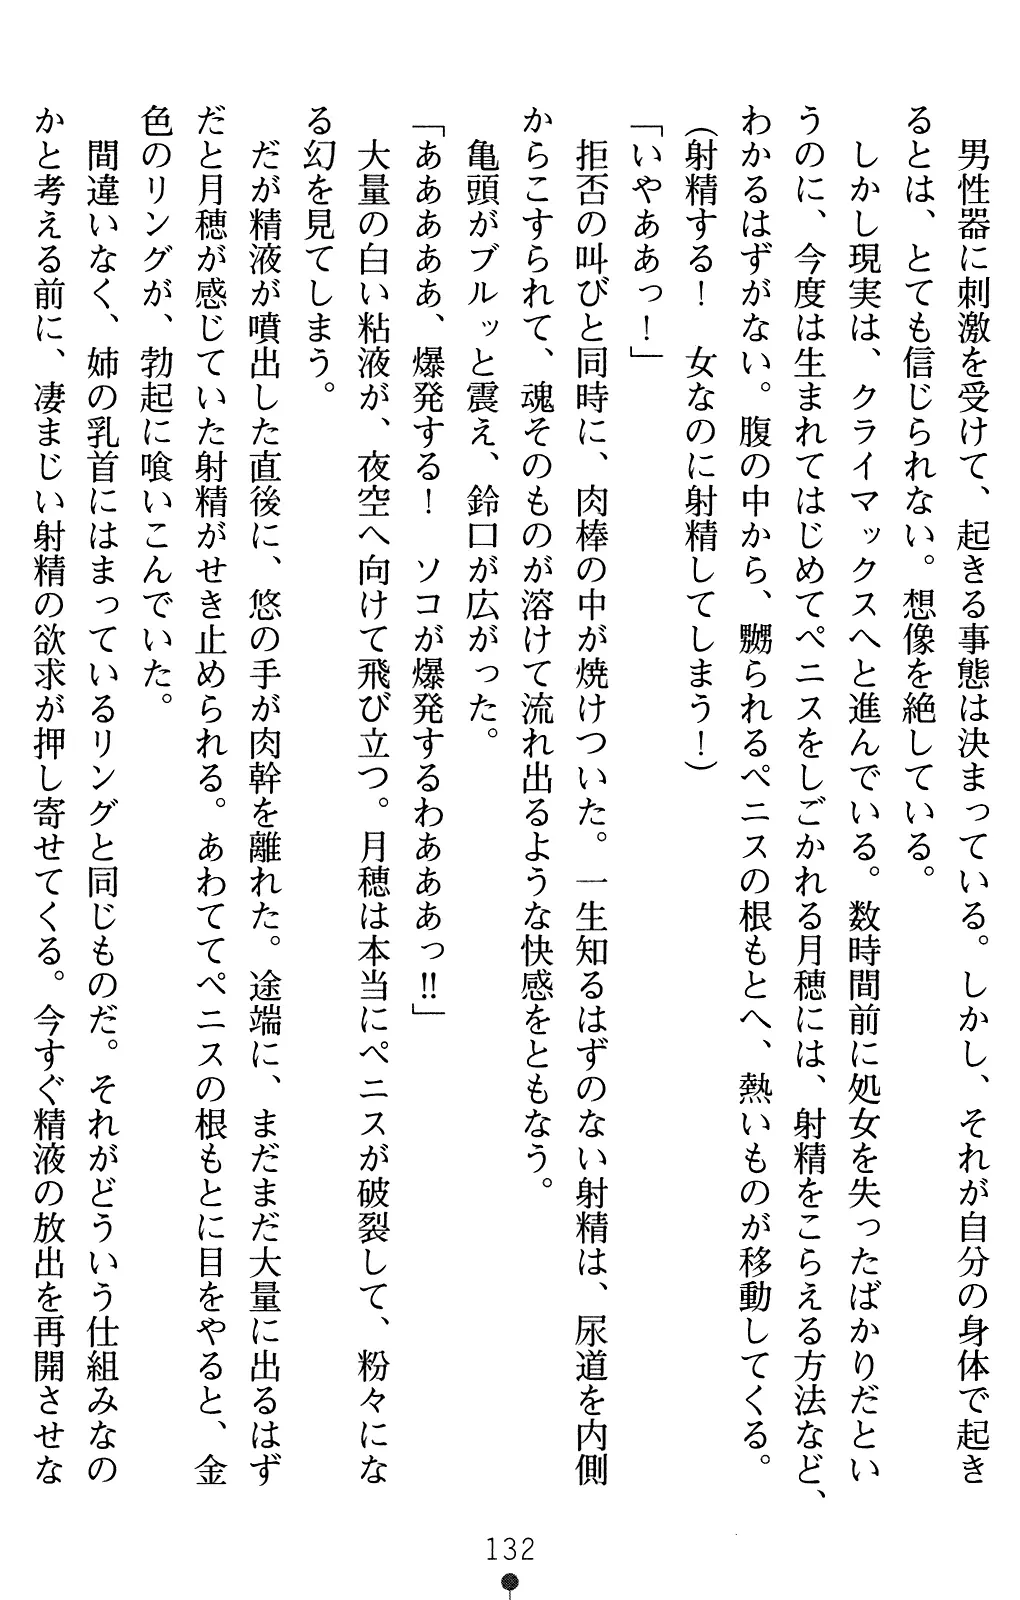 男性器に刺激を受けて、起きる事態は決まっている。しかし、それが自分の身体で起き
るとは、とても信じられない。想像を絶している。
しかし現実は、クライマックスへと進んでいる。数時間前に処女を失ったばかりだとい
うのに、今度は生まれてはじめてペニスをしごかれる月穂には、射精をこらえる方法など、
わかるはずがない。腹の中から、嬲られるペニスの根もとへ、熱いものが移動してくる。
(射精する！　女なのに射精してしまう！)
「いやああっ！」
拒否の叫びと同時に、肉棒の中が焼けついた。一生知るはずのない射精は、尿道を内側
からこすられて、魂そのものが溶けて流れ出るような快感をともなう。
亀頭がブルッと震え、鈴口が広がった。
「あああああ、爆発する！　ソコが爆発するわあああっ!!」
大量の白い粘液が、夜空へ向けて飛び立つ。月穂は本当にペニスが破裂して、粉々にな
る幻を見てしまう。
だが精液が噴出した直後に、悠の手が肉幹を離れた。途端に、まだまだ大量に出るはず
だと月穂が感じていた射精がせき止められる。あわててペニスの根もとに目をやると、金
色のリングが、勃起に喰いこんでいた。
間違いなく、姉の乳首にはまっているリングと同じものだ。それがどういう仕組みなの
かと考える前に、凄まじい射精の欲求が押し寄せてくる。今すぐ精液の放出を再開させな
132